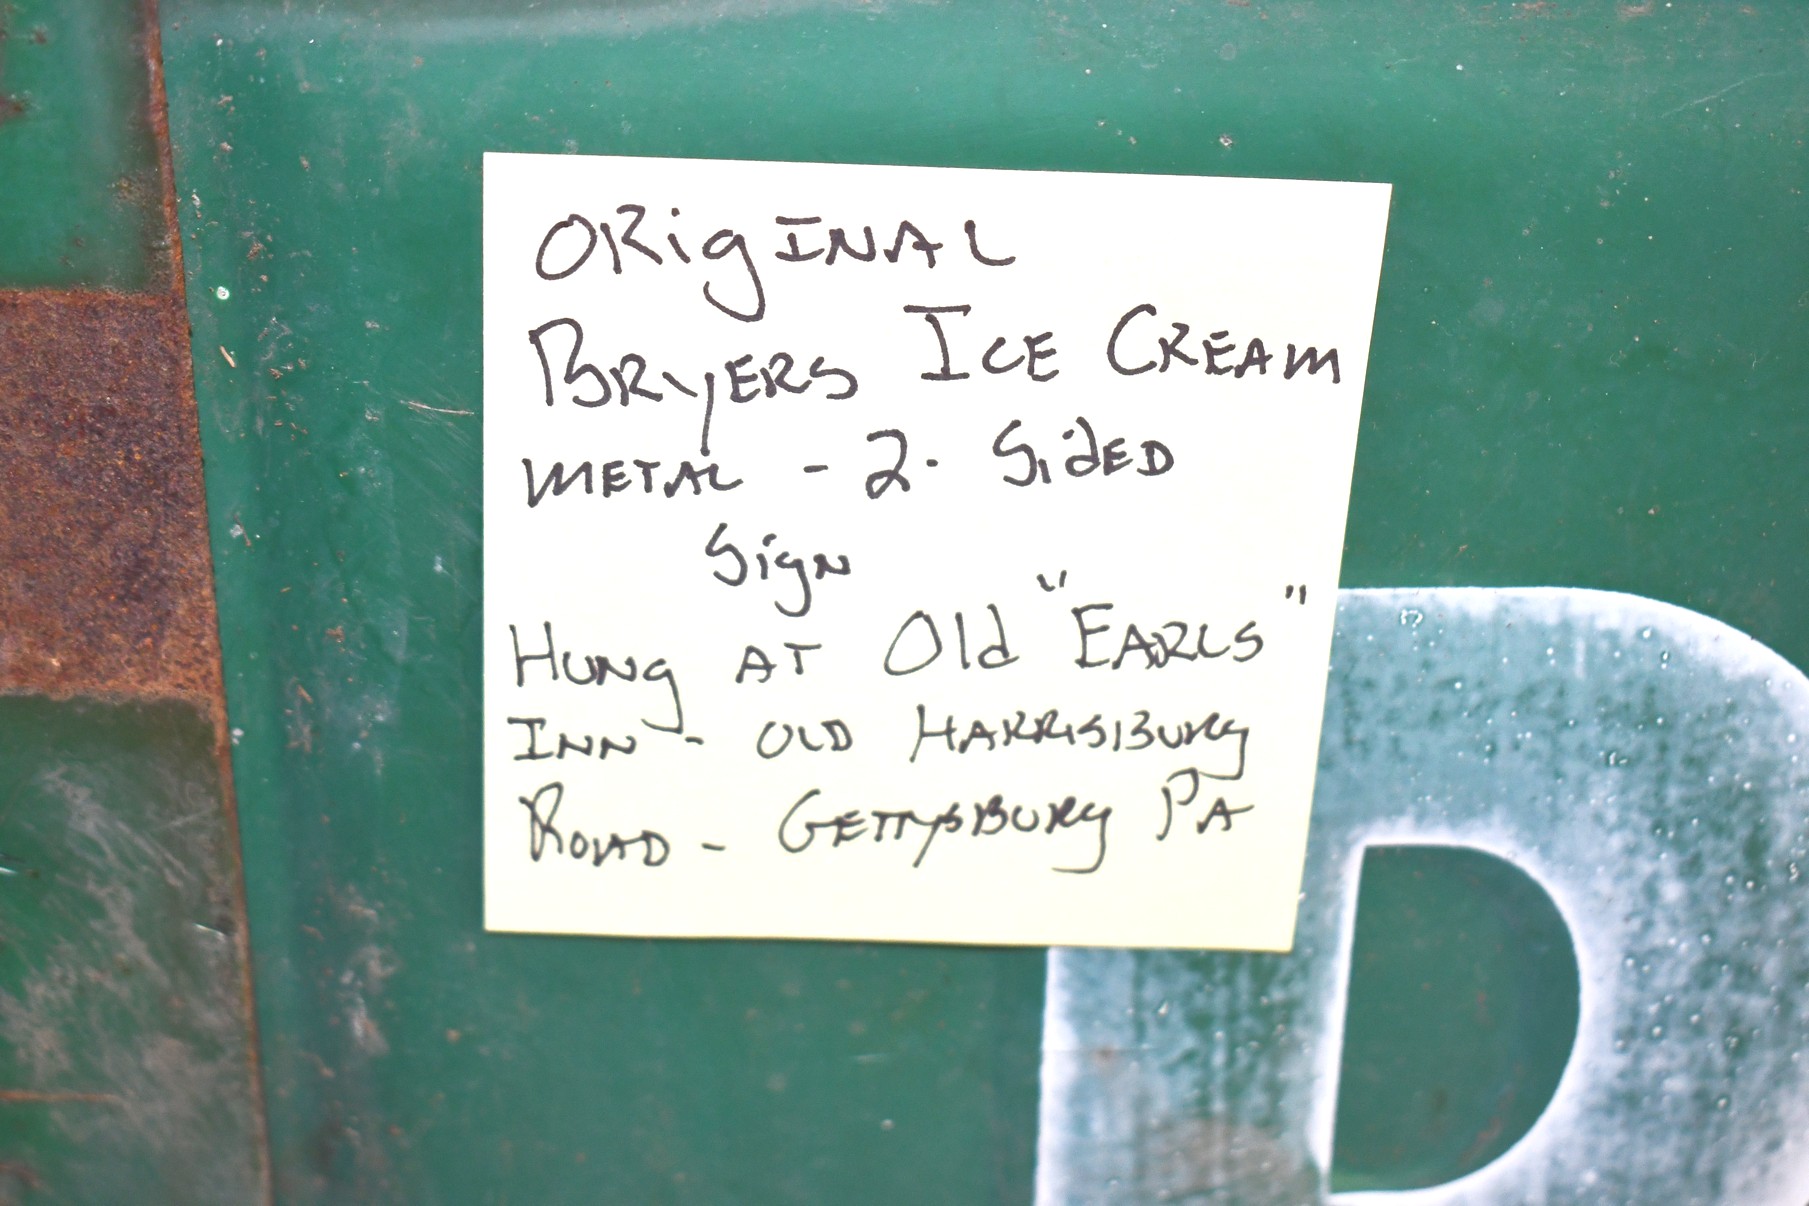 ORigINAL
BRYERS ICE CREAM
METAL - 2. SidED
Sign
HUNg AT Old "EARLS"
INN - OLD HARRISBURg
ROAD - GETTYSBURg PA
D